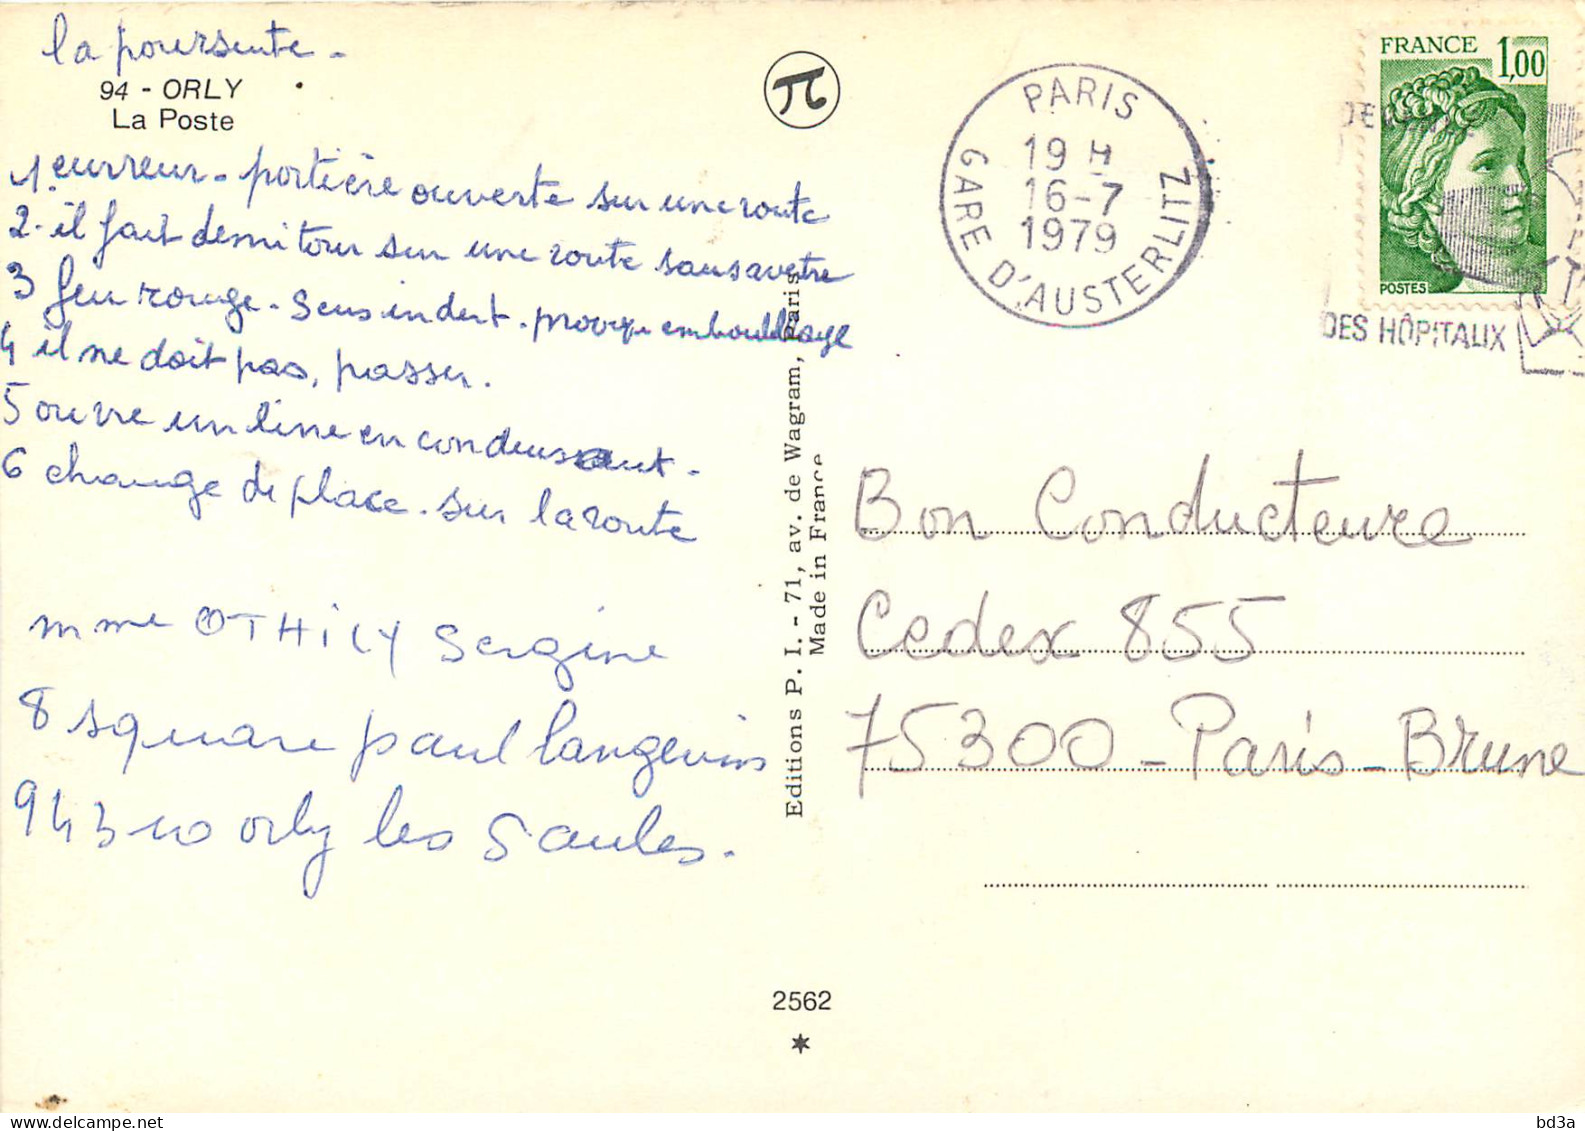 la poursuite -
94 - ORLY
La Poste
1. eurreur - portière ouverte sur une route
2. il fait demi tour sur une route sans avertre
3 feu rouge - sens indert - provqu embouillage
4 il ne doit pas, passer.
5 ouvre un line en condeusant -
6 change de place - sur la route
mme OTHiLY Sergine
8 square paul langevins
94310 orly les Saules.
Editions P. I. - 71, av. de Wagram, Paris
Made in France
2562
PARIS
19 H
16-7
1979
GARE D'AUSTERLITZ
FRANCE 1,00
POSTES
DES HÔPITAUX
Bon Conducteure
Cedex 855
75300 - Paris - Brune
bd3a